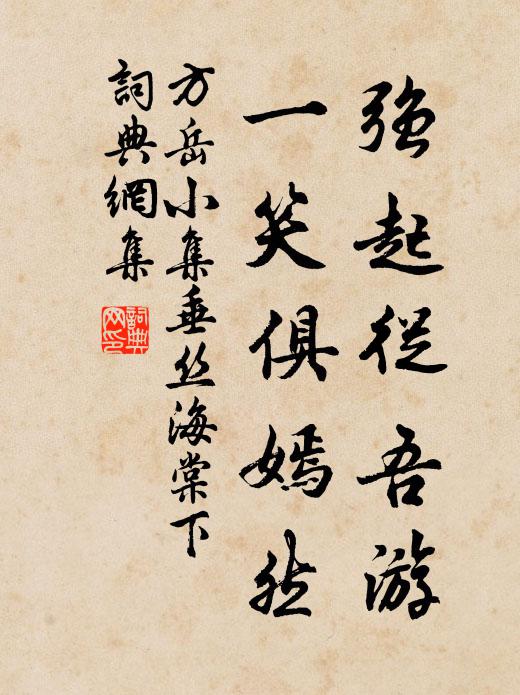 强起從吾游
一笑俱嫣然
方岳小集垂丝海棠下
詞典網集
詞典网印